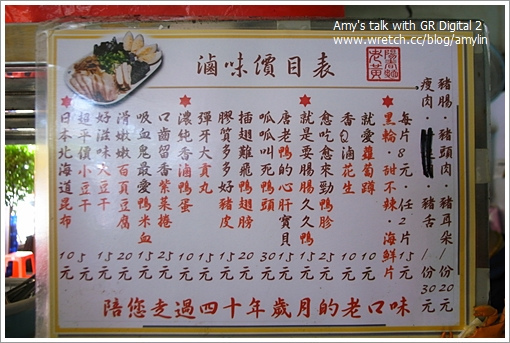 Amy's talk with GR Digital 2
www.wretch.cc/blog/amylin
滷味價目表
豬腸・豬頭肉・豬耳朵/份20元
瘦肉・豬舌/份30元
每片8元・任2片15元
黑輪・甜不辣・海鮮片
就愛蘿蔔蹲 15元
香Q滷花生 15元
愈吃愈來勁鴨胗 35元
就是要腸腸久久鴨 15元
唐老鴨的心肝寶貝 15元
呱呱叫死鴨鴨頭 30元
插翅難飛鴨翅膀 20元
膠質多多好豬皮 15元
彈牙大貢丸 10元
濃純香滷鴨蛋 15元
口齒留香紫菜捲 10元
吸血鬼最愛鴨米血 15元
滑嫩嫩百頁豆腐 20元
好滋味大豆干 15元
超平價小豆干 5元
日本北海道昆布 10元
陪您走過四十年歲月的老口味